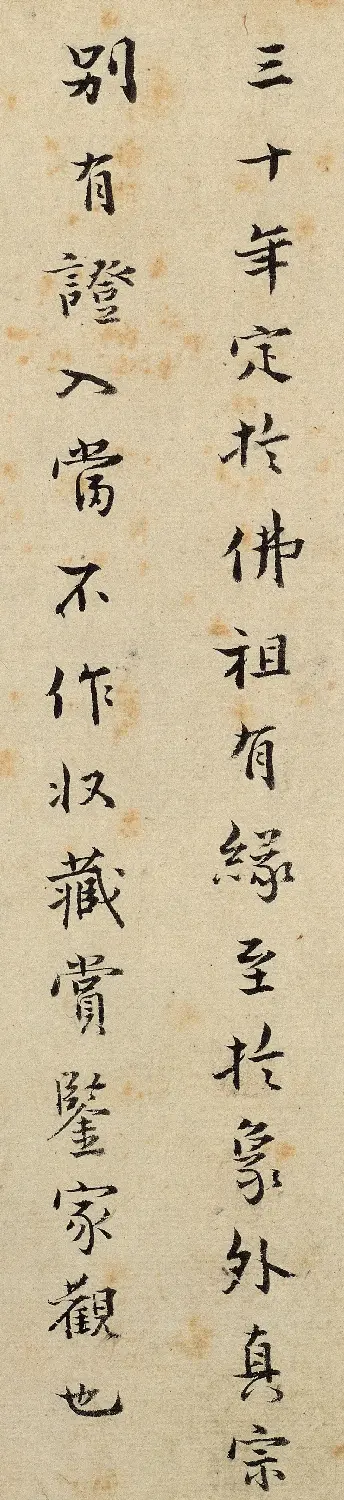 三十年定於佛祖有緣至於象外真宗
別有證入當不作収藏賞鑒家觀也